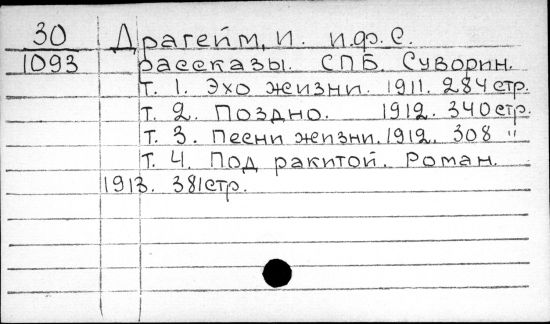 30 Драгейм, И. И.Ф.С.
1093 рассказы. СПБ. Суворин.
Т. 1. Эхо жизни. 1911. 284 стр.
Т. 2. Поздно. 1912. 340 стр.
Т. 3. Песни жизни. 1912. 308 "
Т. 4. Под ракитой. Роман.
1913. 381 стр.